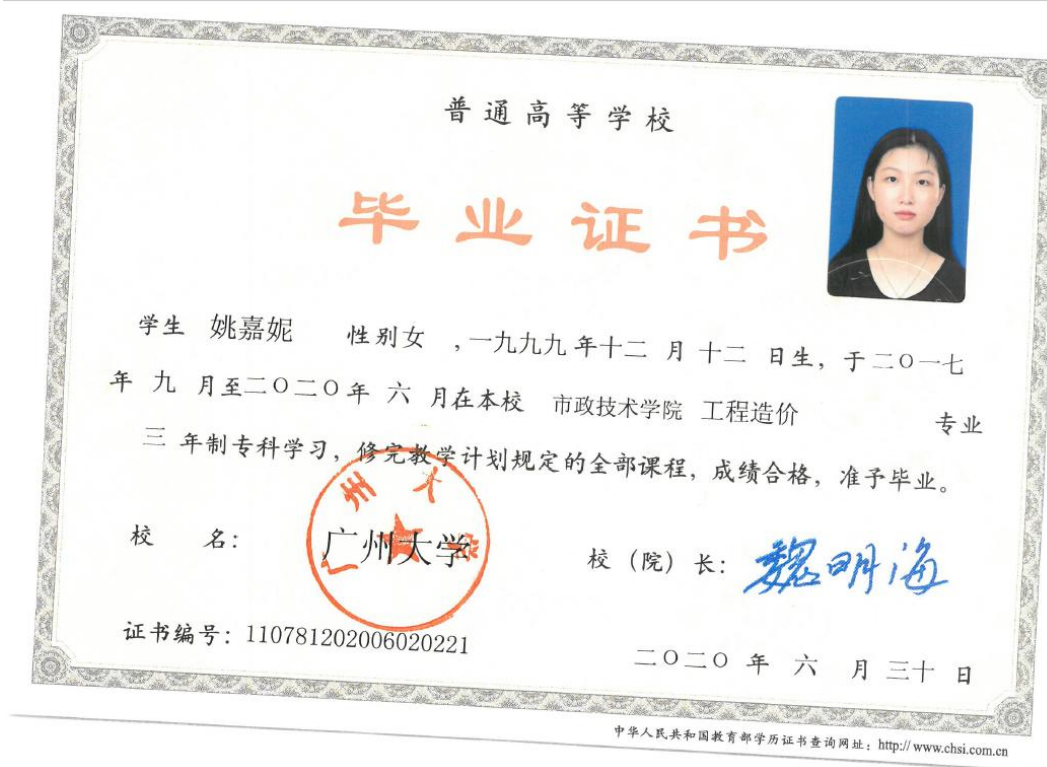 普通高等学校
毕业证书
学生 姚嘉妮 性别女 ，一九九九年十二月十二日生，于二〇一七
年九月至二〇二〇年六月在本校 市政技术学院 工程造价 专业
三年制专科学习，修完教学计划规定的全部课程，成绩合格，准予毕业。
广州大学
校 名：广州大学
校（院）长：魏明海
证书编号：110781202006020221
二〇二〇年六月三十日
中华人民共和国教育部学历证书查询网址：http://www.chsi.com.cn